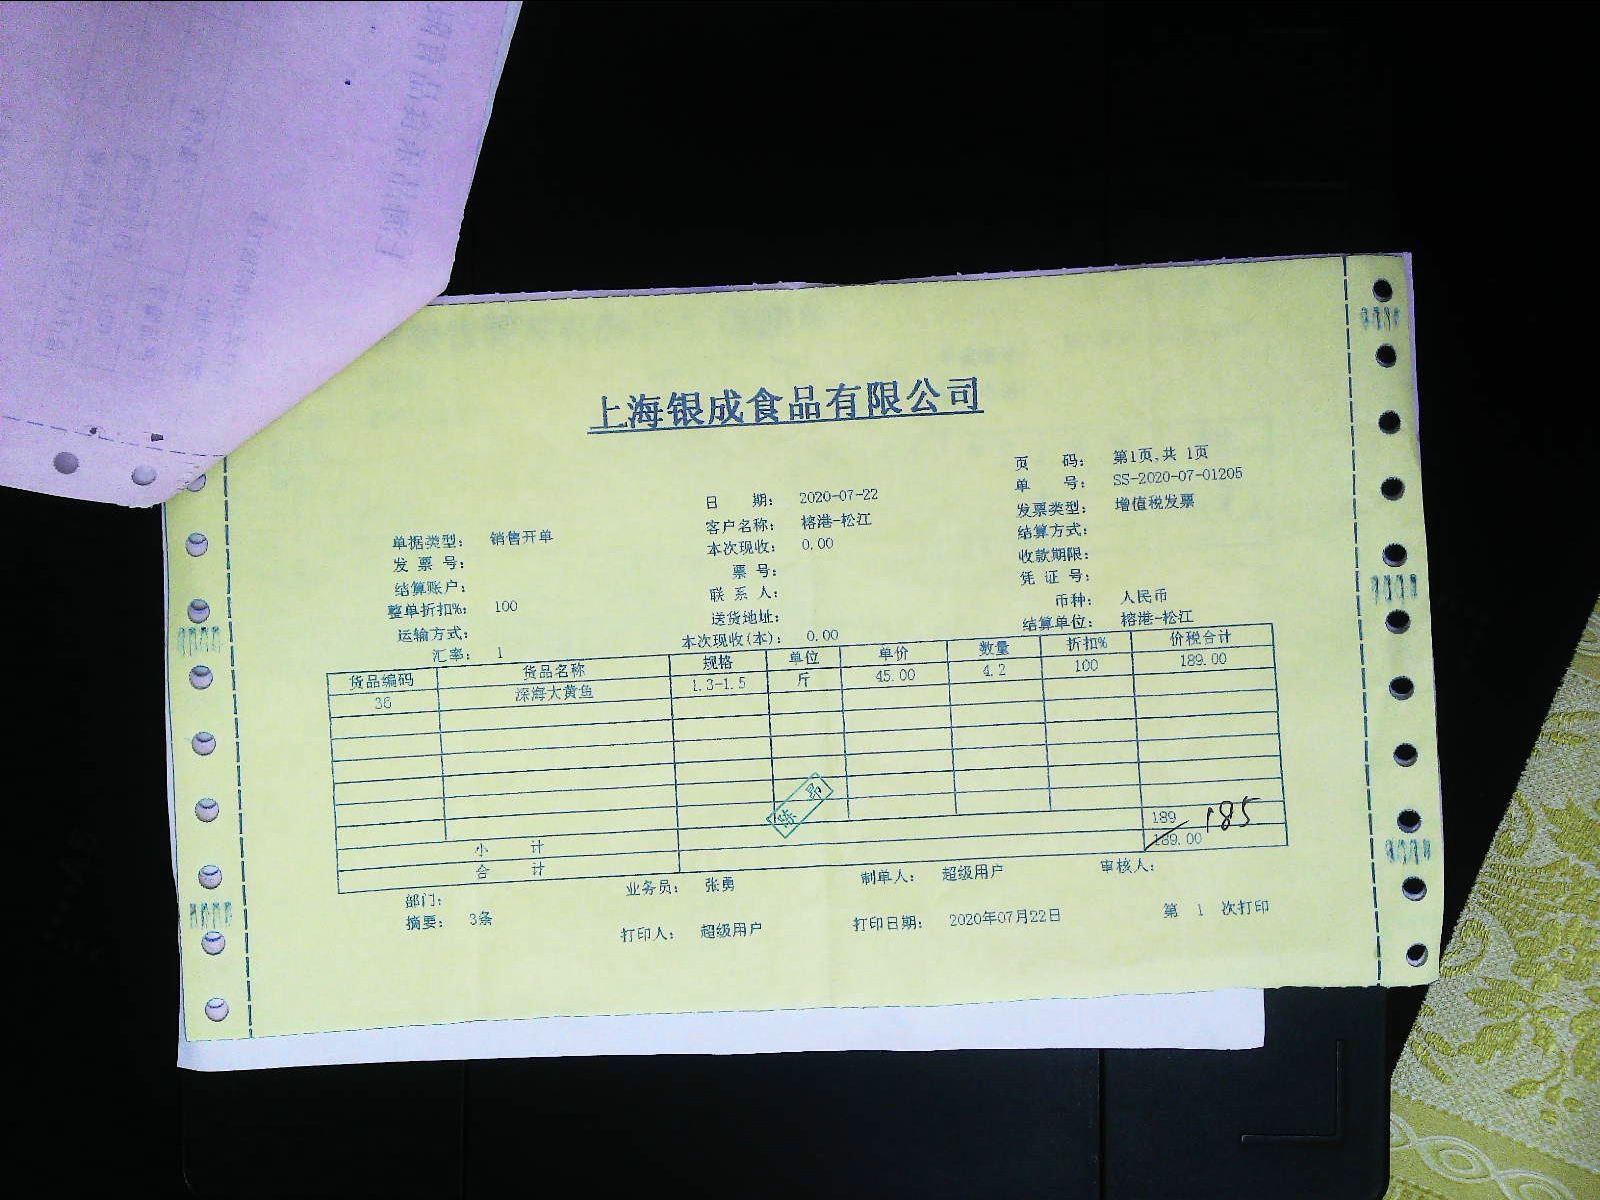 上海银成食品有限公司
页 码： 第1页,共 1页
日 期： 2020-07-22 单 号： SS-2020-07-01205
单据类型： 销售开单 客户名称： 榕港-松江 发票类型： 增值税发票
发 票 号： 本次现收： 0.00 结算方式：
结算账户： 票 号： 收款期限：
整单折扣%： 100 联 系 人： 凭 证 号：
运输方式： 送货地址： 币种： 人民币
汇率： 1 本次现收(本)： 0.00 结算单位： 榕港-松江
货品编码 货品名称 规格 单位 单价 数量 折扣% 价税合计
36 深海大黄鱼 1.3-1.5 斤 45.00 4.2 100 189.00
陈 昂
小 计 189 185
合 计 189.00
部门： 业务员： 张勇 制单人： 超级用户 审核人：
摘要： 3条 打印人： 超级用户 打印日期： 2020年07月22日 第 1 次打印